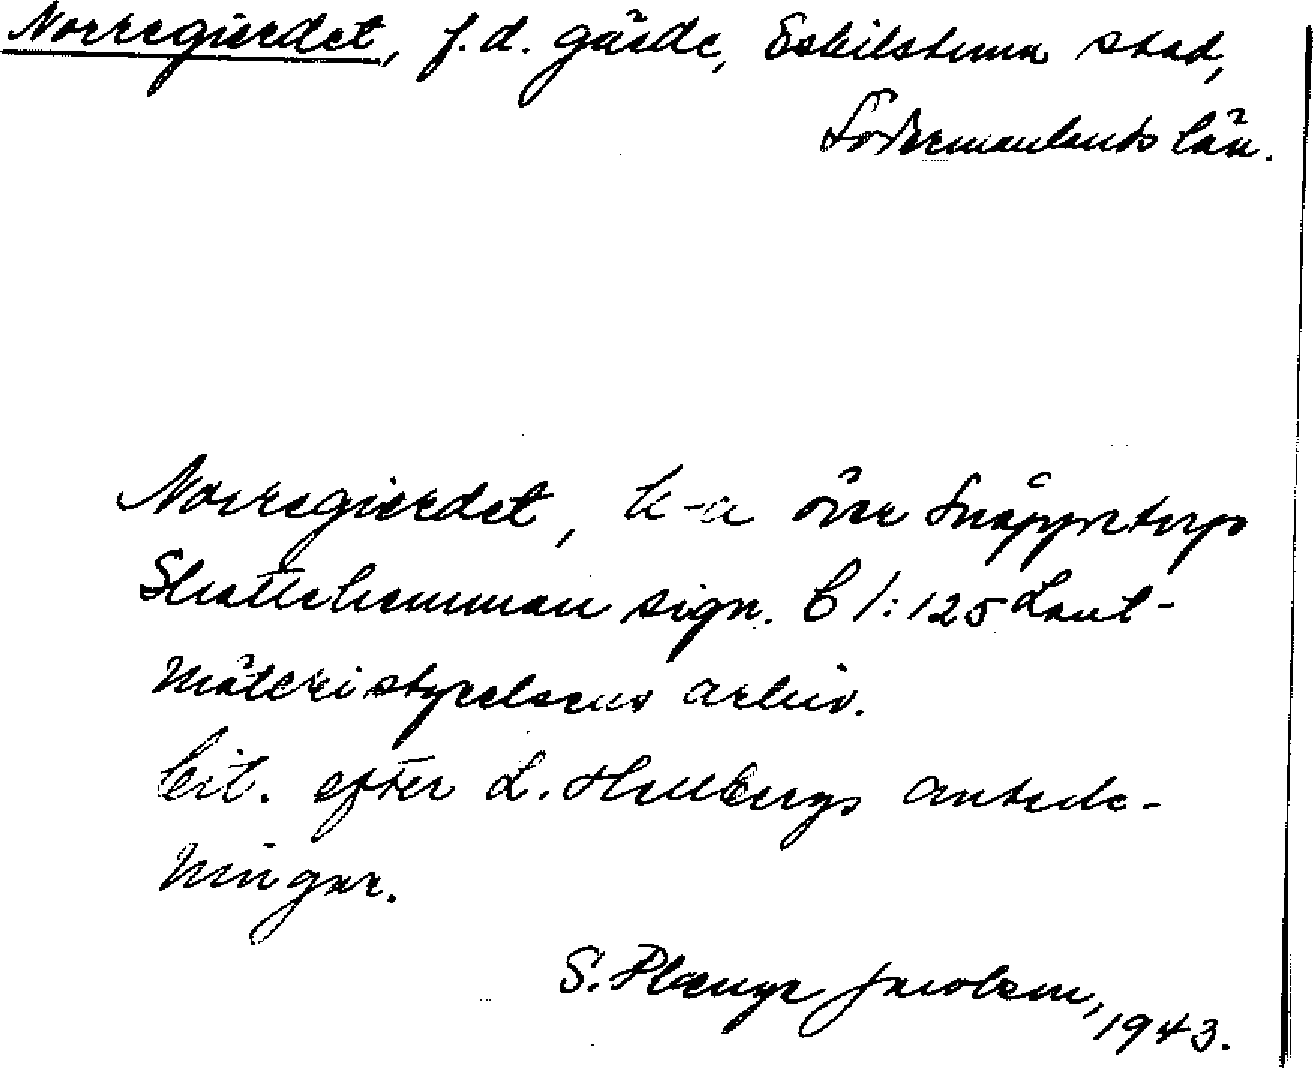 Norregierdet, f.d. gärde, Eskilstuna stad,
Södermanlands län.
Norregierdet, k-a över Snäppstorps
Skattehemman sign. C 1:125 Lant-
mäteristyrelsens arkiv.
Cit. efter L. Hellbergs anteck-
ningar.
S. Plænge Jacobsen,
1943.